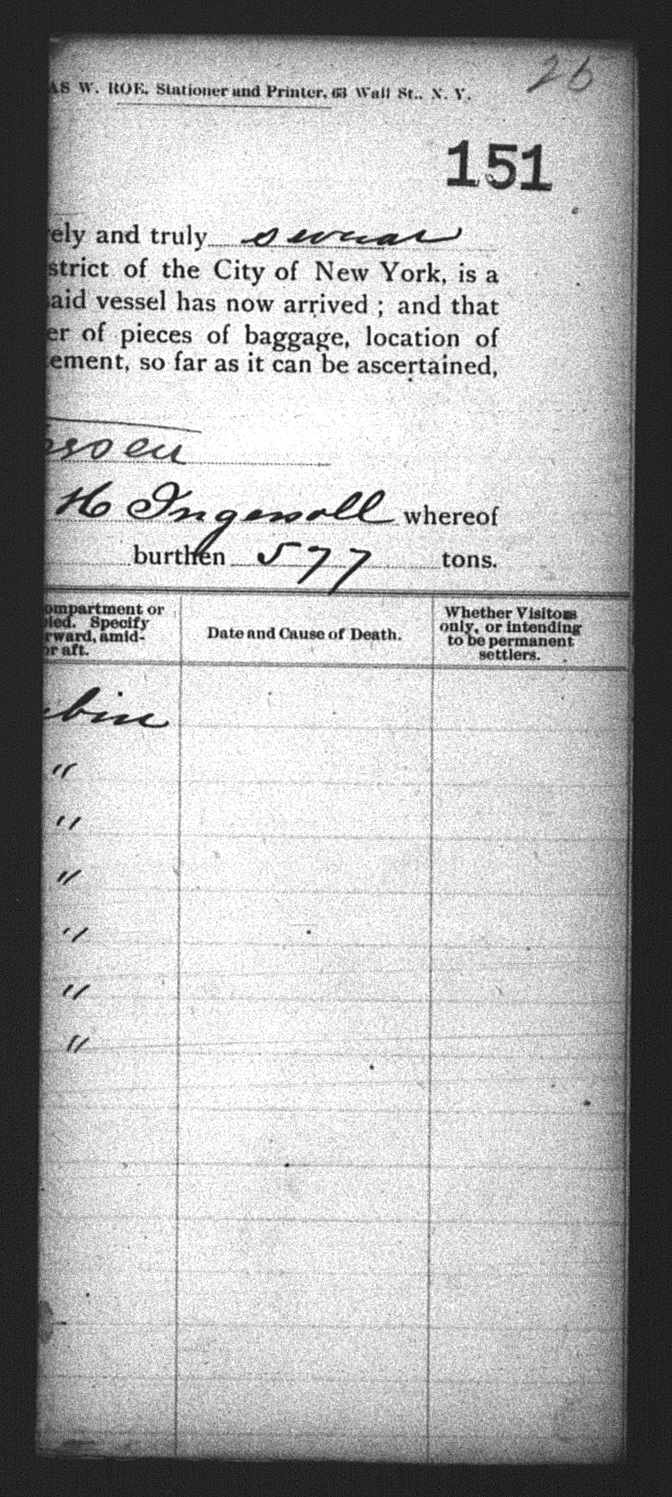 26
AS W. ROE, Stationer and Printer, 63 Wall St., N. Y.
151
ely and truly swear
strict of the City of New York, is a
aid vessel has now arrived ; and that
er of pieces of baggage, location of
ement, so far as it can be ascertained,
H Ingersoll whereof
burthen 577 tons.
ompartment or
pied. Specify
rward, amid-
or aft.
Date and Cause of Death.
Whether Visitors
only, or intending
to be permanent
settlers.
bin
"
"
"
"
"
"